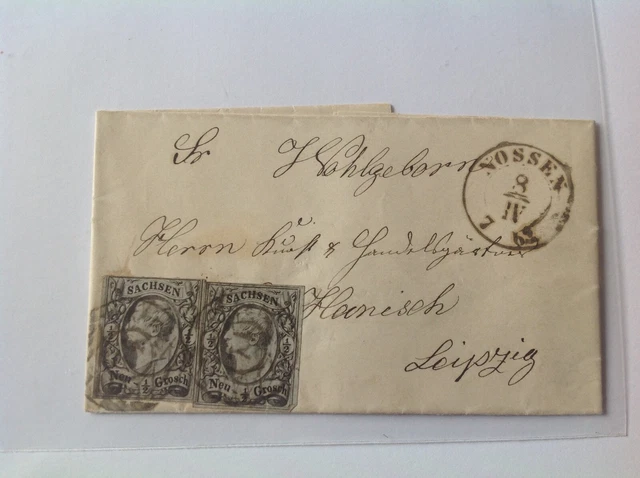 Sr Wohlgeborn
Herrn Kunst & Handelsgärtner
Hanisch
Leipzig
NOSSEN
8
IV
62
SACHSEN
½ ½
Neu ½ Grosch
SACHSEN
½ ½
Neu ½ Grosch